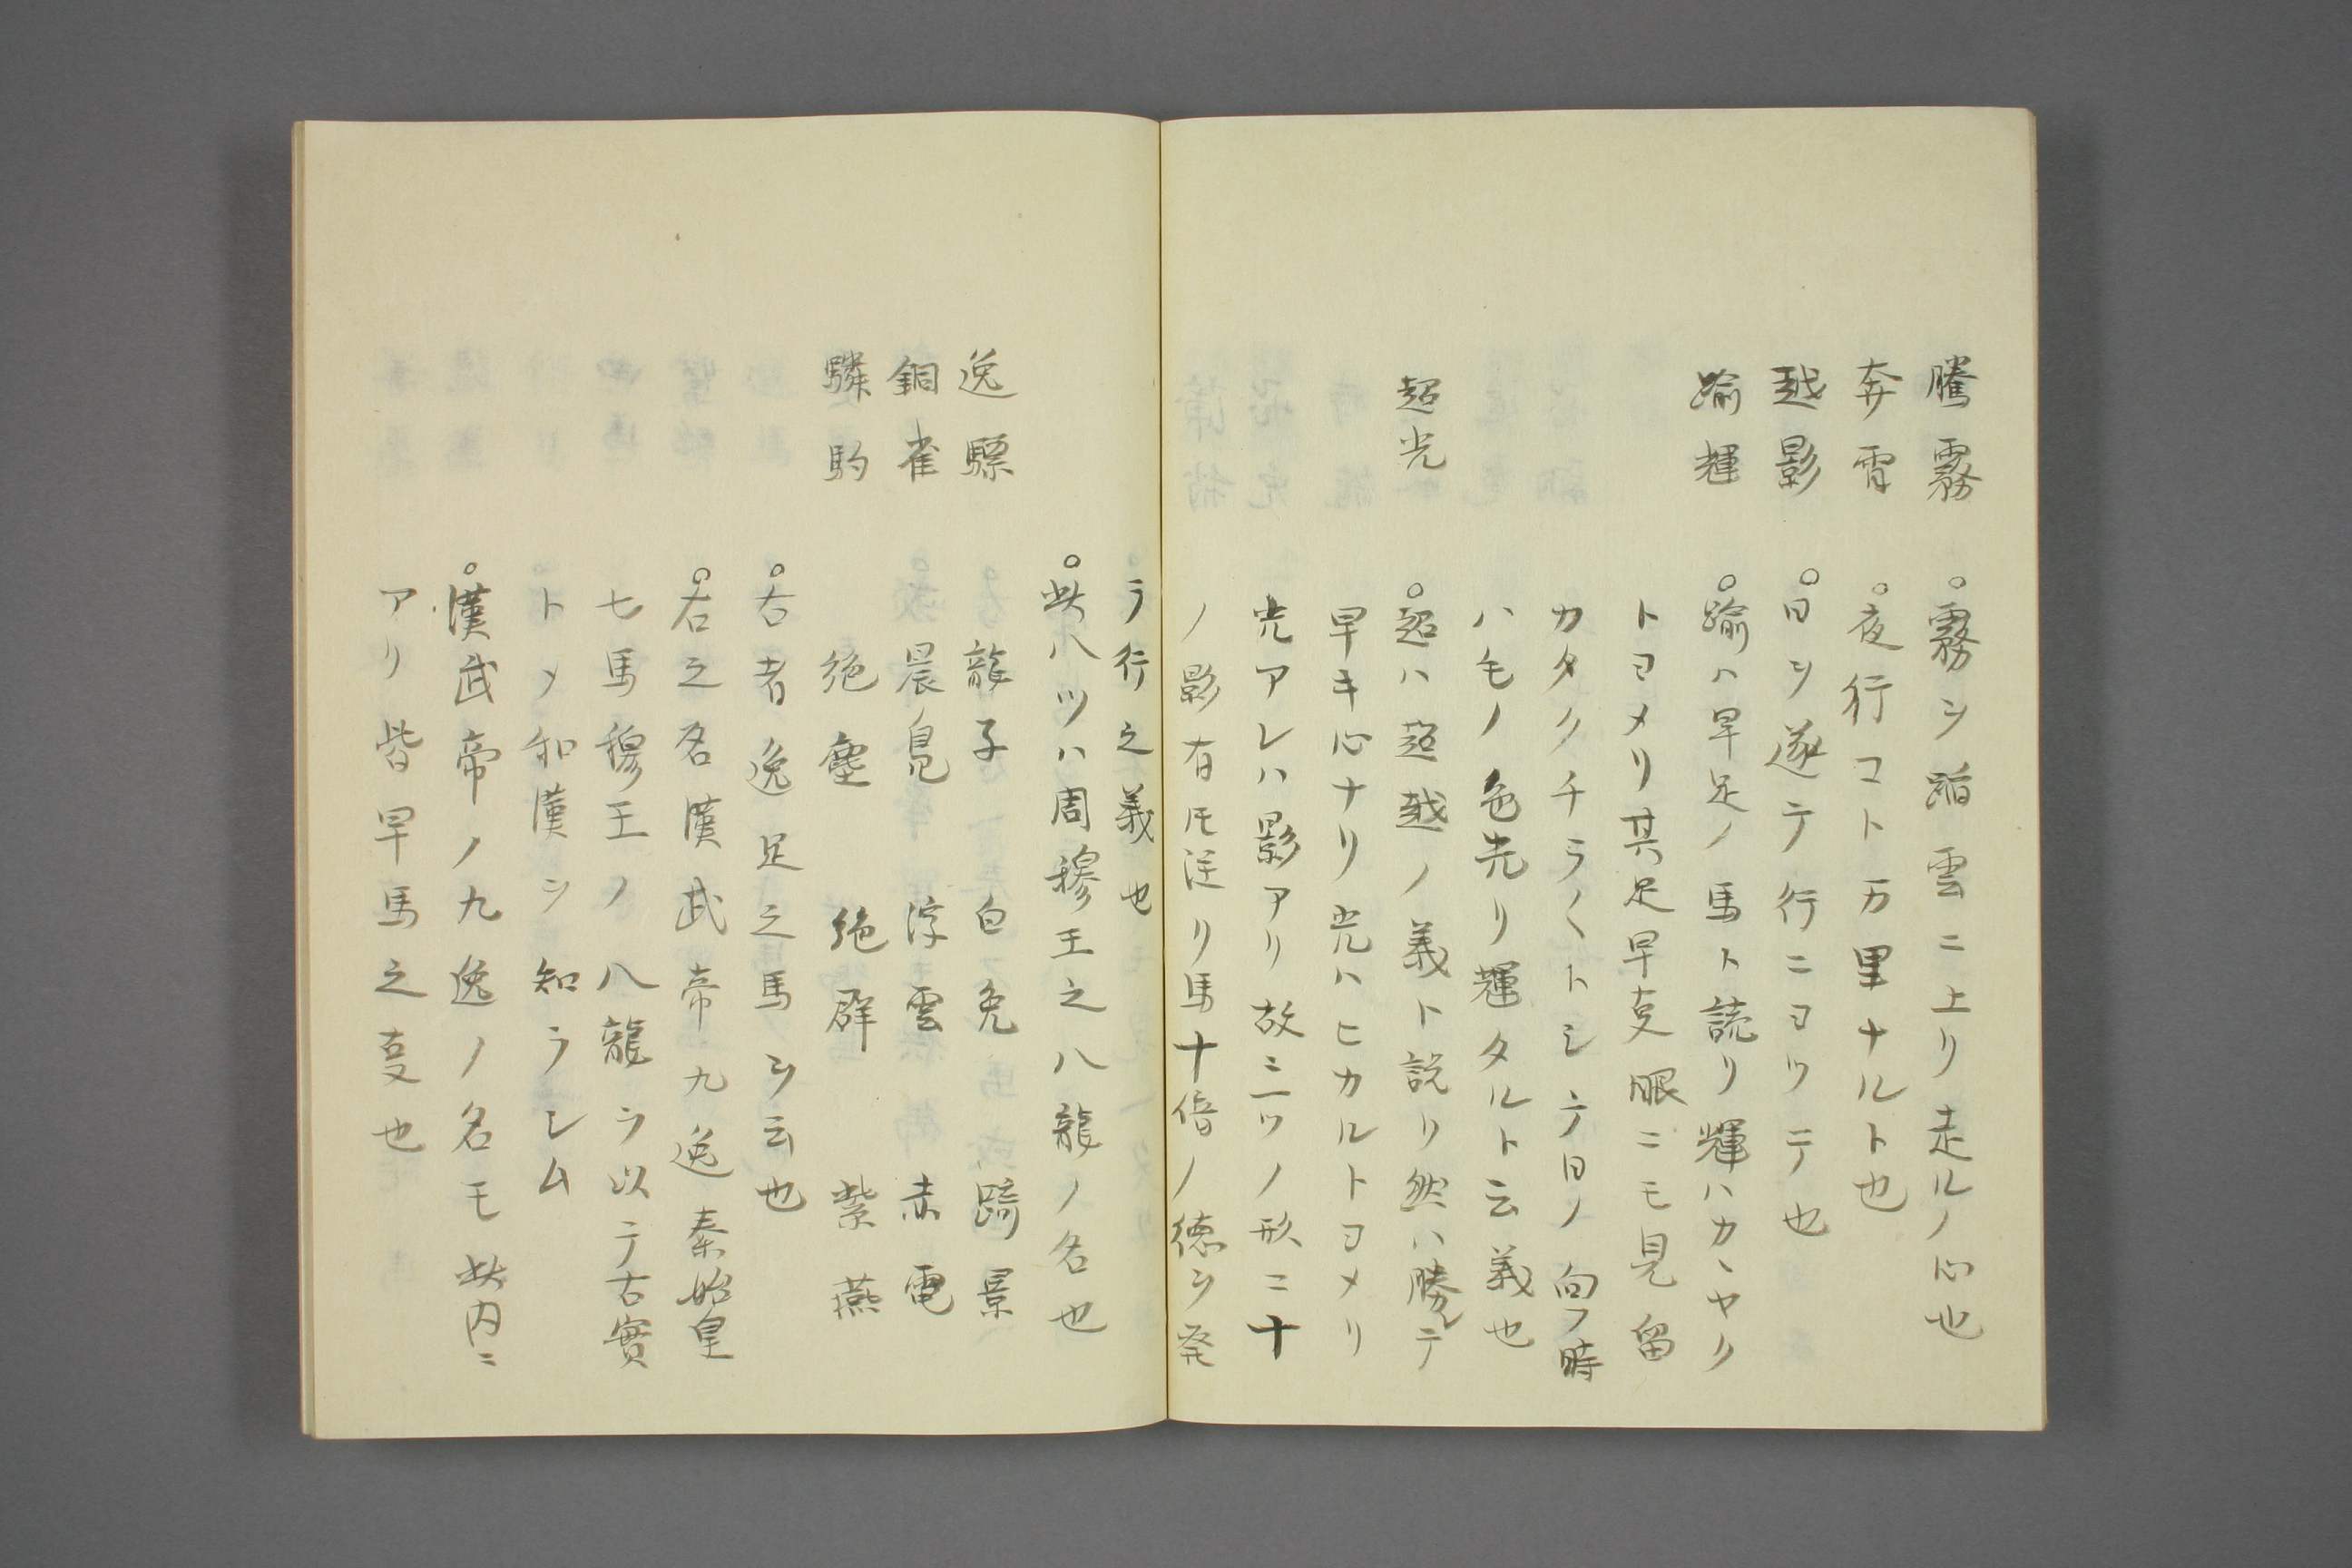 騰霧 。霧ヲ蹈雲ニ上リ走ルノ心也
奔霄 。夜行コト万里ナルト也
越影 。日ヲ逐テ行ニヨツテ也
踰輝 。踰ハ早足ノ馬ト読リ輝ハカヽヤク
トヨメリ其足早㕝眼ニモ見留
カタクチラ〱トシテ日ノ向フ時
ハモノ色先リ輝タルト云義也
超光 。超ハ超越ノ義ト説リ然ハ勝テ
早キ心ナリ光ハヒカルトヨメリ
光アレハ影アリ故ニ一ツノ形ニ十
ノ影有モ
リ馬十倍ノ徳ヲ発
ラ行之義也
。此八ツハ周穆王之八龍ノ名也
逸驃 龍子 白兔 踦景
銅雀 晨鳧 浮雲 赤電
驎駒 絶塵 絶群 紫燕
。右者逸足之馬ヲ云也
。右之名漢武帝九逸秦始皇
七馬穆王ノ八龍ヲ以テ古實
トメ和漢ヲ知ラシム
。漢武帝ノ九逸ノ名モ此内ニ
アリ皆早馬之㕝也